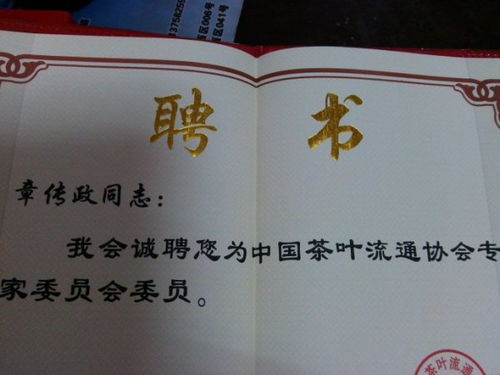 13758250
区008号
区041号
聘 书
章传政同志：
我会诚聘您为中国茶叶流通协会专
家委员会委员。
茶叶流通